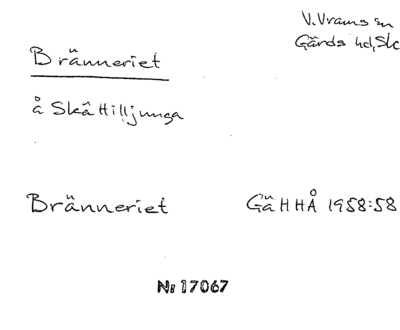 V. Vrams sn
Gärds hd, Sk
Bränneriet
å Skättilljunga
Bränneriet GäHHÅ 1958:58
Nr 17067